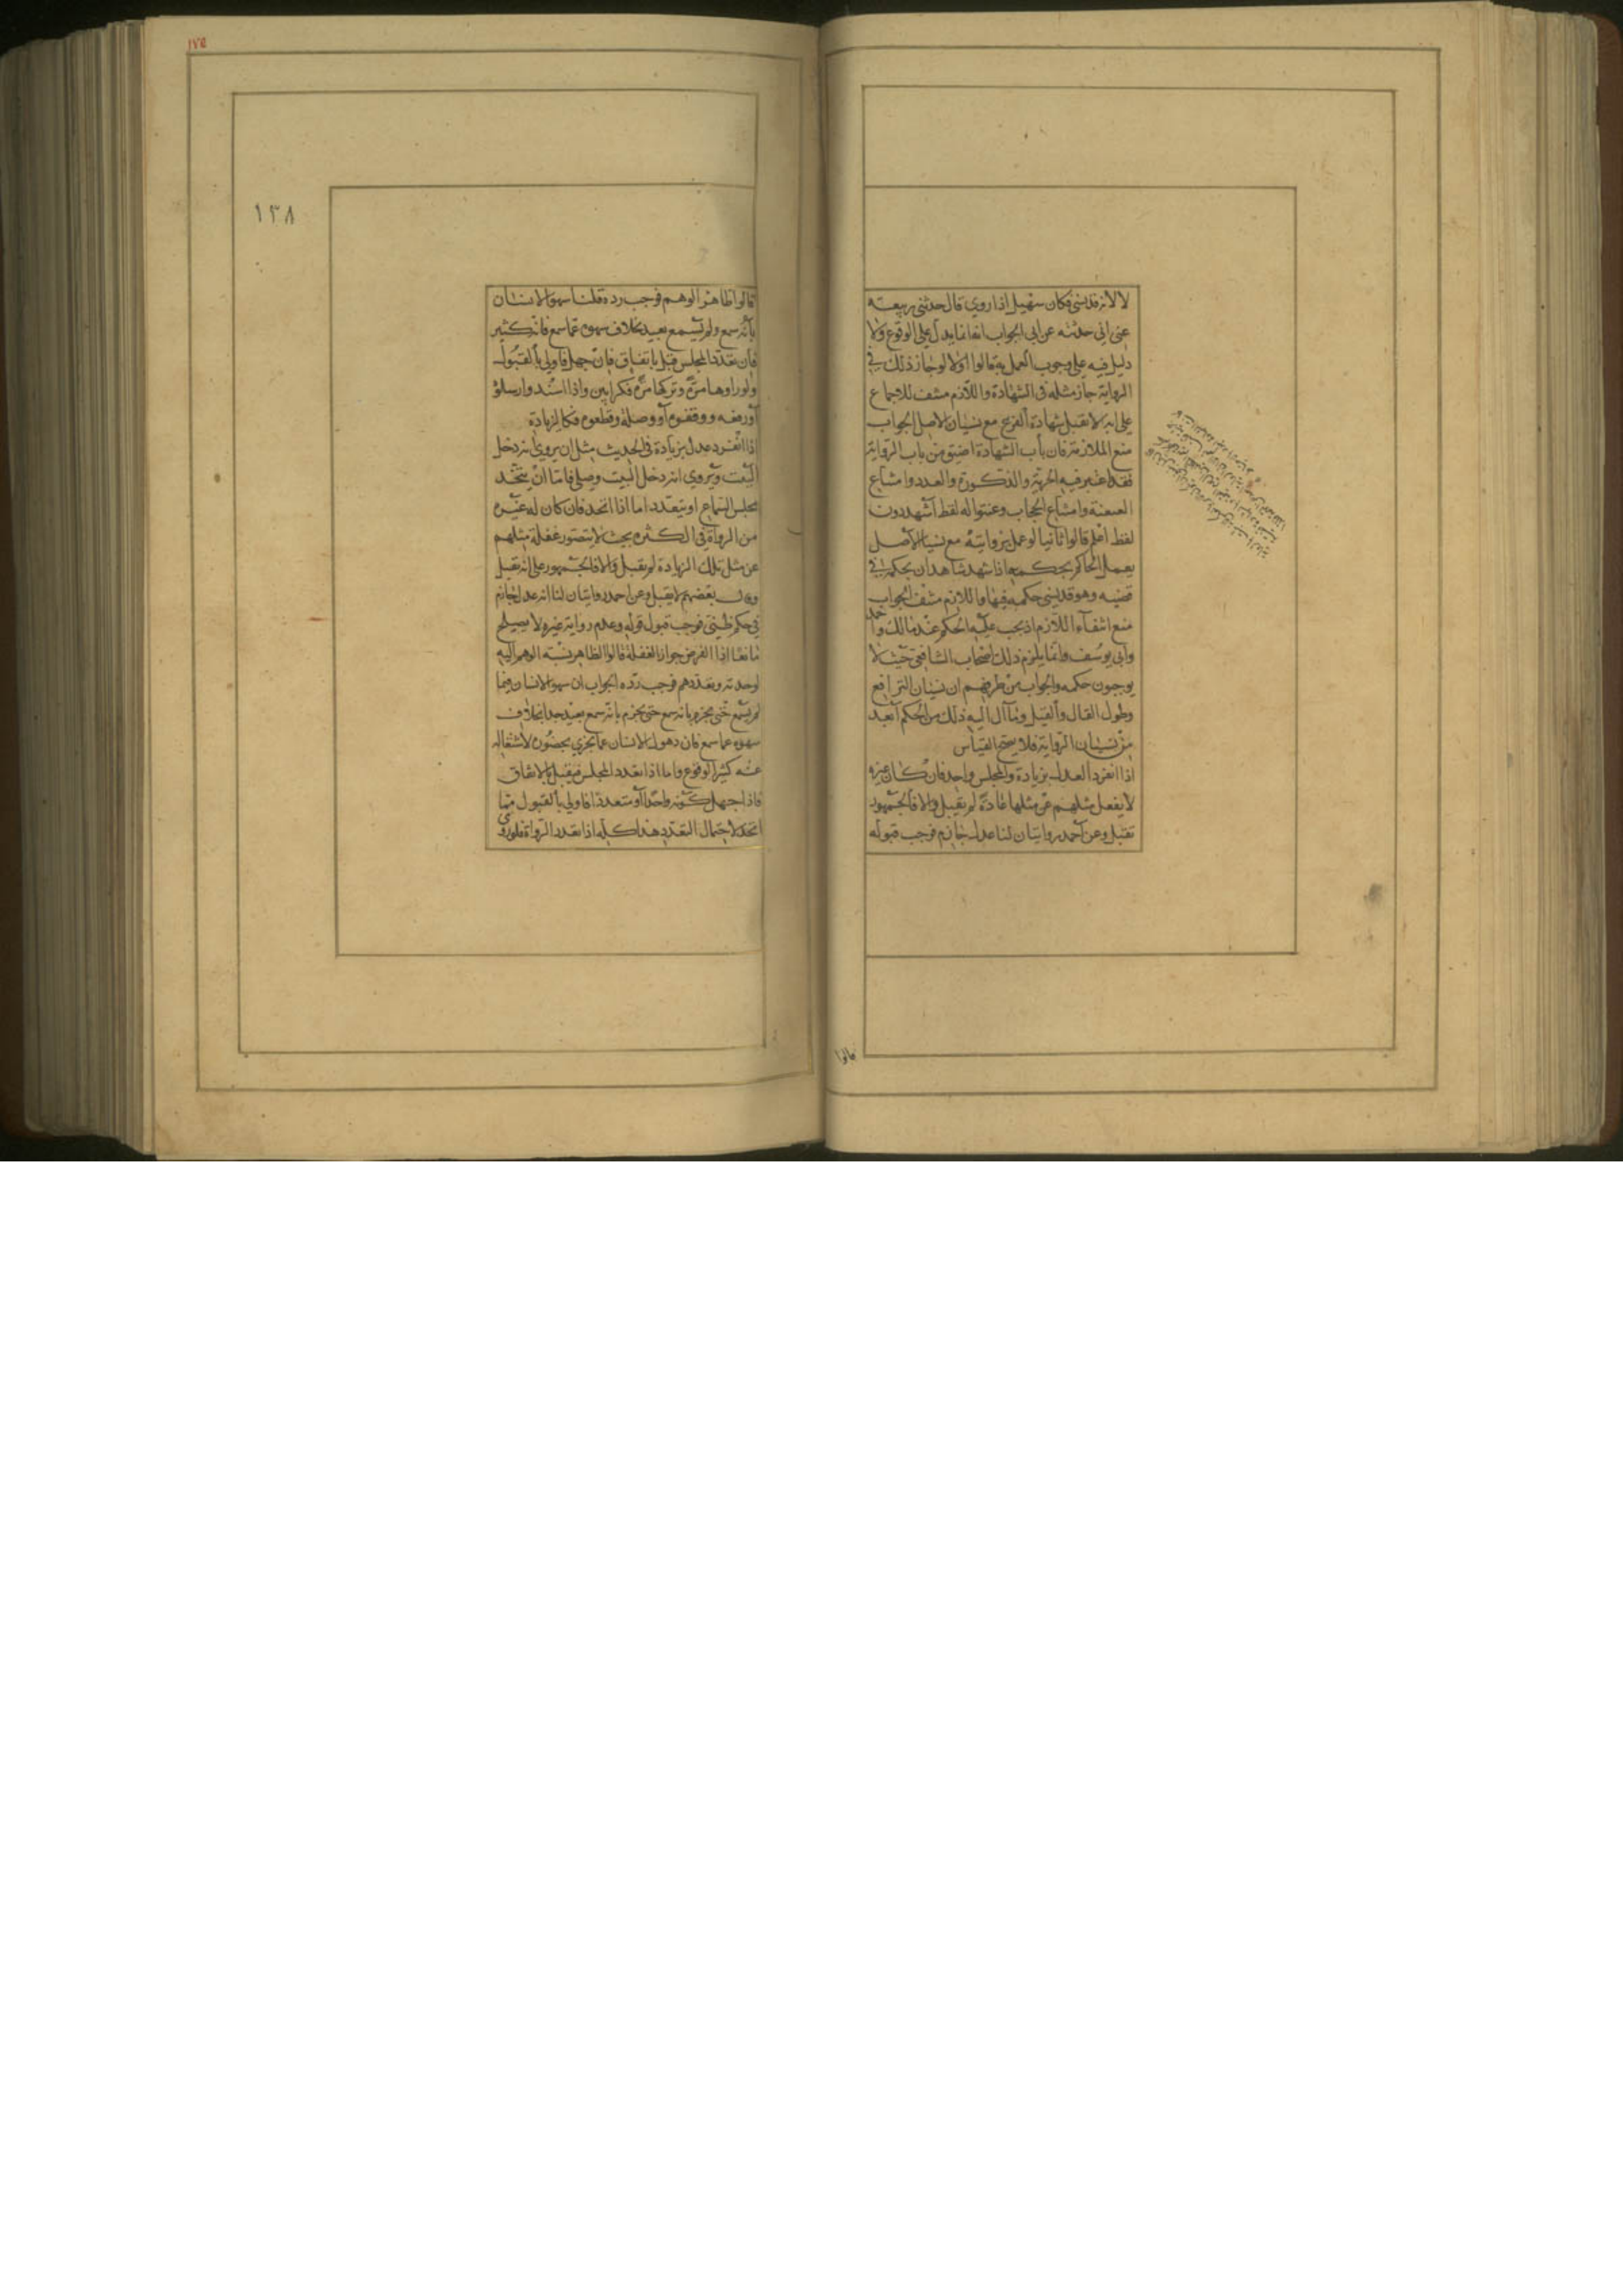 لا لأنه قد ينسى فكان سهيل إذا روى قال حدثني ربيعة
عني أني حدثته عن أبي الجواب إنما يدل على الوقوع ولا
دليل فيه على وجوب العمل به قالوا أولا لو جاز ذلك في
الرواية جاز مثله في الشهادة واللازم منتف للإجماع
على أنه لا تقبل شهادة الفرع مع نسيان الأصل الجواب
منع الملازمة فإن باب الشهادة أضيق من باب الرواية
فقد اعتبر فيه الحرية والذكورة والعدد وامتناع
العنعنة وامتناع الحجاب وعينوا له لفظ أشهد دون
لفظ أعلم قالوا ثانيا لو عمل بروايته مع نسيان الأصل
يعمل الحاكم بحكمه إذا شهد شاهدان بحكمه في
قضية وهو قد نسي حكمه فيها واللازم منتف الجواب
منع انتفاء اللازم إذ يجب عليه الحكم عند مالك وأحمد
وأبي يوسف وإنما يلزم ذلك أصحاب الشافعي حيث لا
يوجبون حكمه والجواب من طرفهم أن نسيان الترافع
وطول القال والقيل وما آل إليه ذلك من الحكم أبعد
من نسيان الرواية فلا يصح القياس
إذا انفرد العدل بزيادة والمجلس واحد فإن كان غيره
لا يغفل مثلهم عن مثلها عادة لم يقبل وإلا فالجمهور
تقبل وعن أحمد روايتان لنا عدل جازم فوجب قبوله
قالوا
١٧٥
١٣٨
قالوا ظاهر الوهم فوجب رده قلنا سهو الإنسان
بأنه سمع ولم يسمع بعيد بخلاف سهوه عما سمع فإنه كثير
فإن تعدد المجلس قبل باتفاق فإن جهل فأولى بالقبول
ولو رواها مرة وتركها مرة فكراويين وإذا أسند وأرسلوه
أو رفعه ووقفوه أو وصله وقطعوه فكالزيادة
إذا انفرد عدل بزيادة في الحديث مثل أن يروي أنه دخل
البيت ويروي أنه دخل البيت وصلى فإما أن يتحد
مجلس السماع أو يتعدد أما إذا اتحد فإن كان له غيره
من الرواة في الكثرة بحيث لا يتصور غفلة مثلهم
عن مثل تلك الزيادة لم يقبل وإلا فالجمهور على أنه تقبل
وقال بعضهم لا يقبل وعن أحمد روايتان لنا أنه عدل جازم
في حكم ظني فوجب قبول قوله وعدم رواية غيره لا يصلح
مانعا إذ الفرض جواز الغفلة قالوا الظاهر نسبة الوهم إليه
لوحدته وتعددهم فوجب رده الجواب أن سهو الإنسان فيما
لم يسمع حتى يجزم بأنه سمع حتى يجزم بأنه سمع بعيد جدا بخلاف
سهوه عما سمع فإن ذهول الإنسان عما يجري بحضوره لاشتغاله
عنه كثير الوقوع وأما إذا تعدد المجلس فيقبل بالاتفاق
فإذا جهل كونه واحدا أو متعددا فأولى بالقبول مما
اتحد لاحتمال التعدد هذا كله إذا تعدد الرواة فلو روى